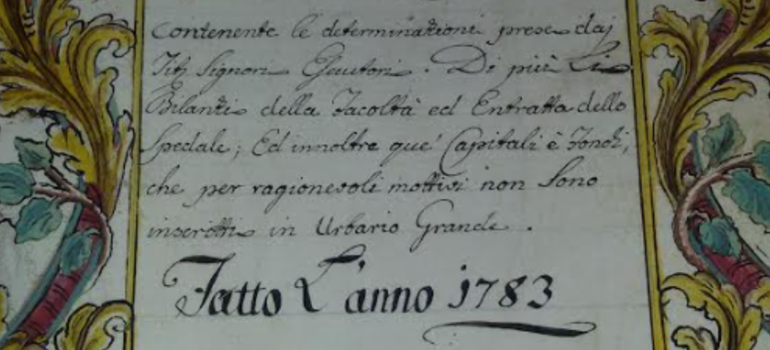 contenente le determinationi prese daj
Titj Signori Esecutori. Di più Li
Bilanti della Facoltà ed Entratta dello
Spedale; Ed innoltre que' Capitali è Fondi,
che per ragionevoli mottivi non Sono
inscritti in Urbario Grande.
Fatto L'anno 1783